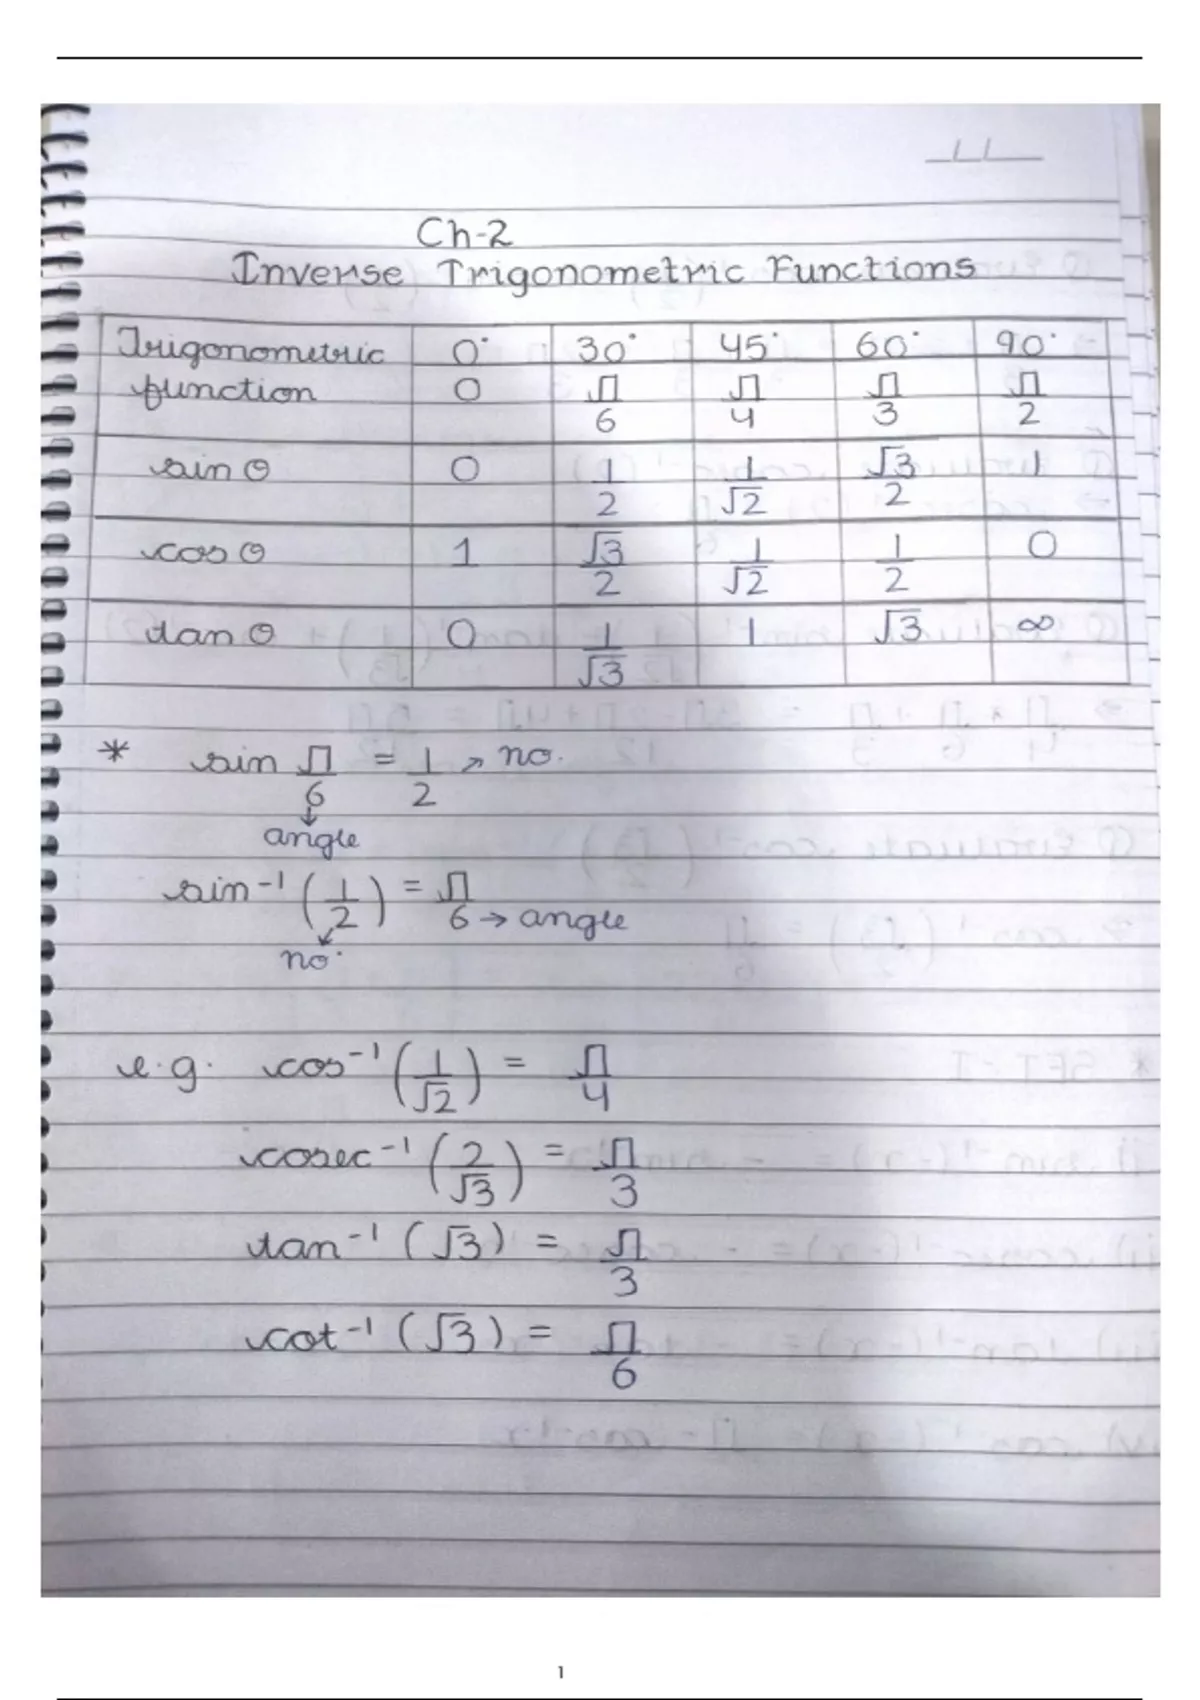 Ch-2
Inverse Trigonometric Functions
Trigonometric function | 0° | 30° | 45° | 60° | 90°
0 | π/6 | π/4 | π/3 | π/2
sin θ | 0 | 1/2 | 1/√2 | √3/2 | 1
cos θ | 1 | √3/2 | 1/√2 | 1/2 | 0
tan θ | 0 | 1/√3 | 1 | √3 | ∞
* sin π/6 = 1/2 → no.
angle
sin⁻¹ (1/2) = π/6 → angle
no.
e.g. cos⁻¹ (1/√2) = π/4
cosec⁻¹ (2/√3) = π/3
tan⁻¹ (√3) = π/3
cot⁻¹ (√3) = π/6
1